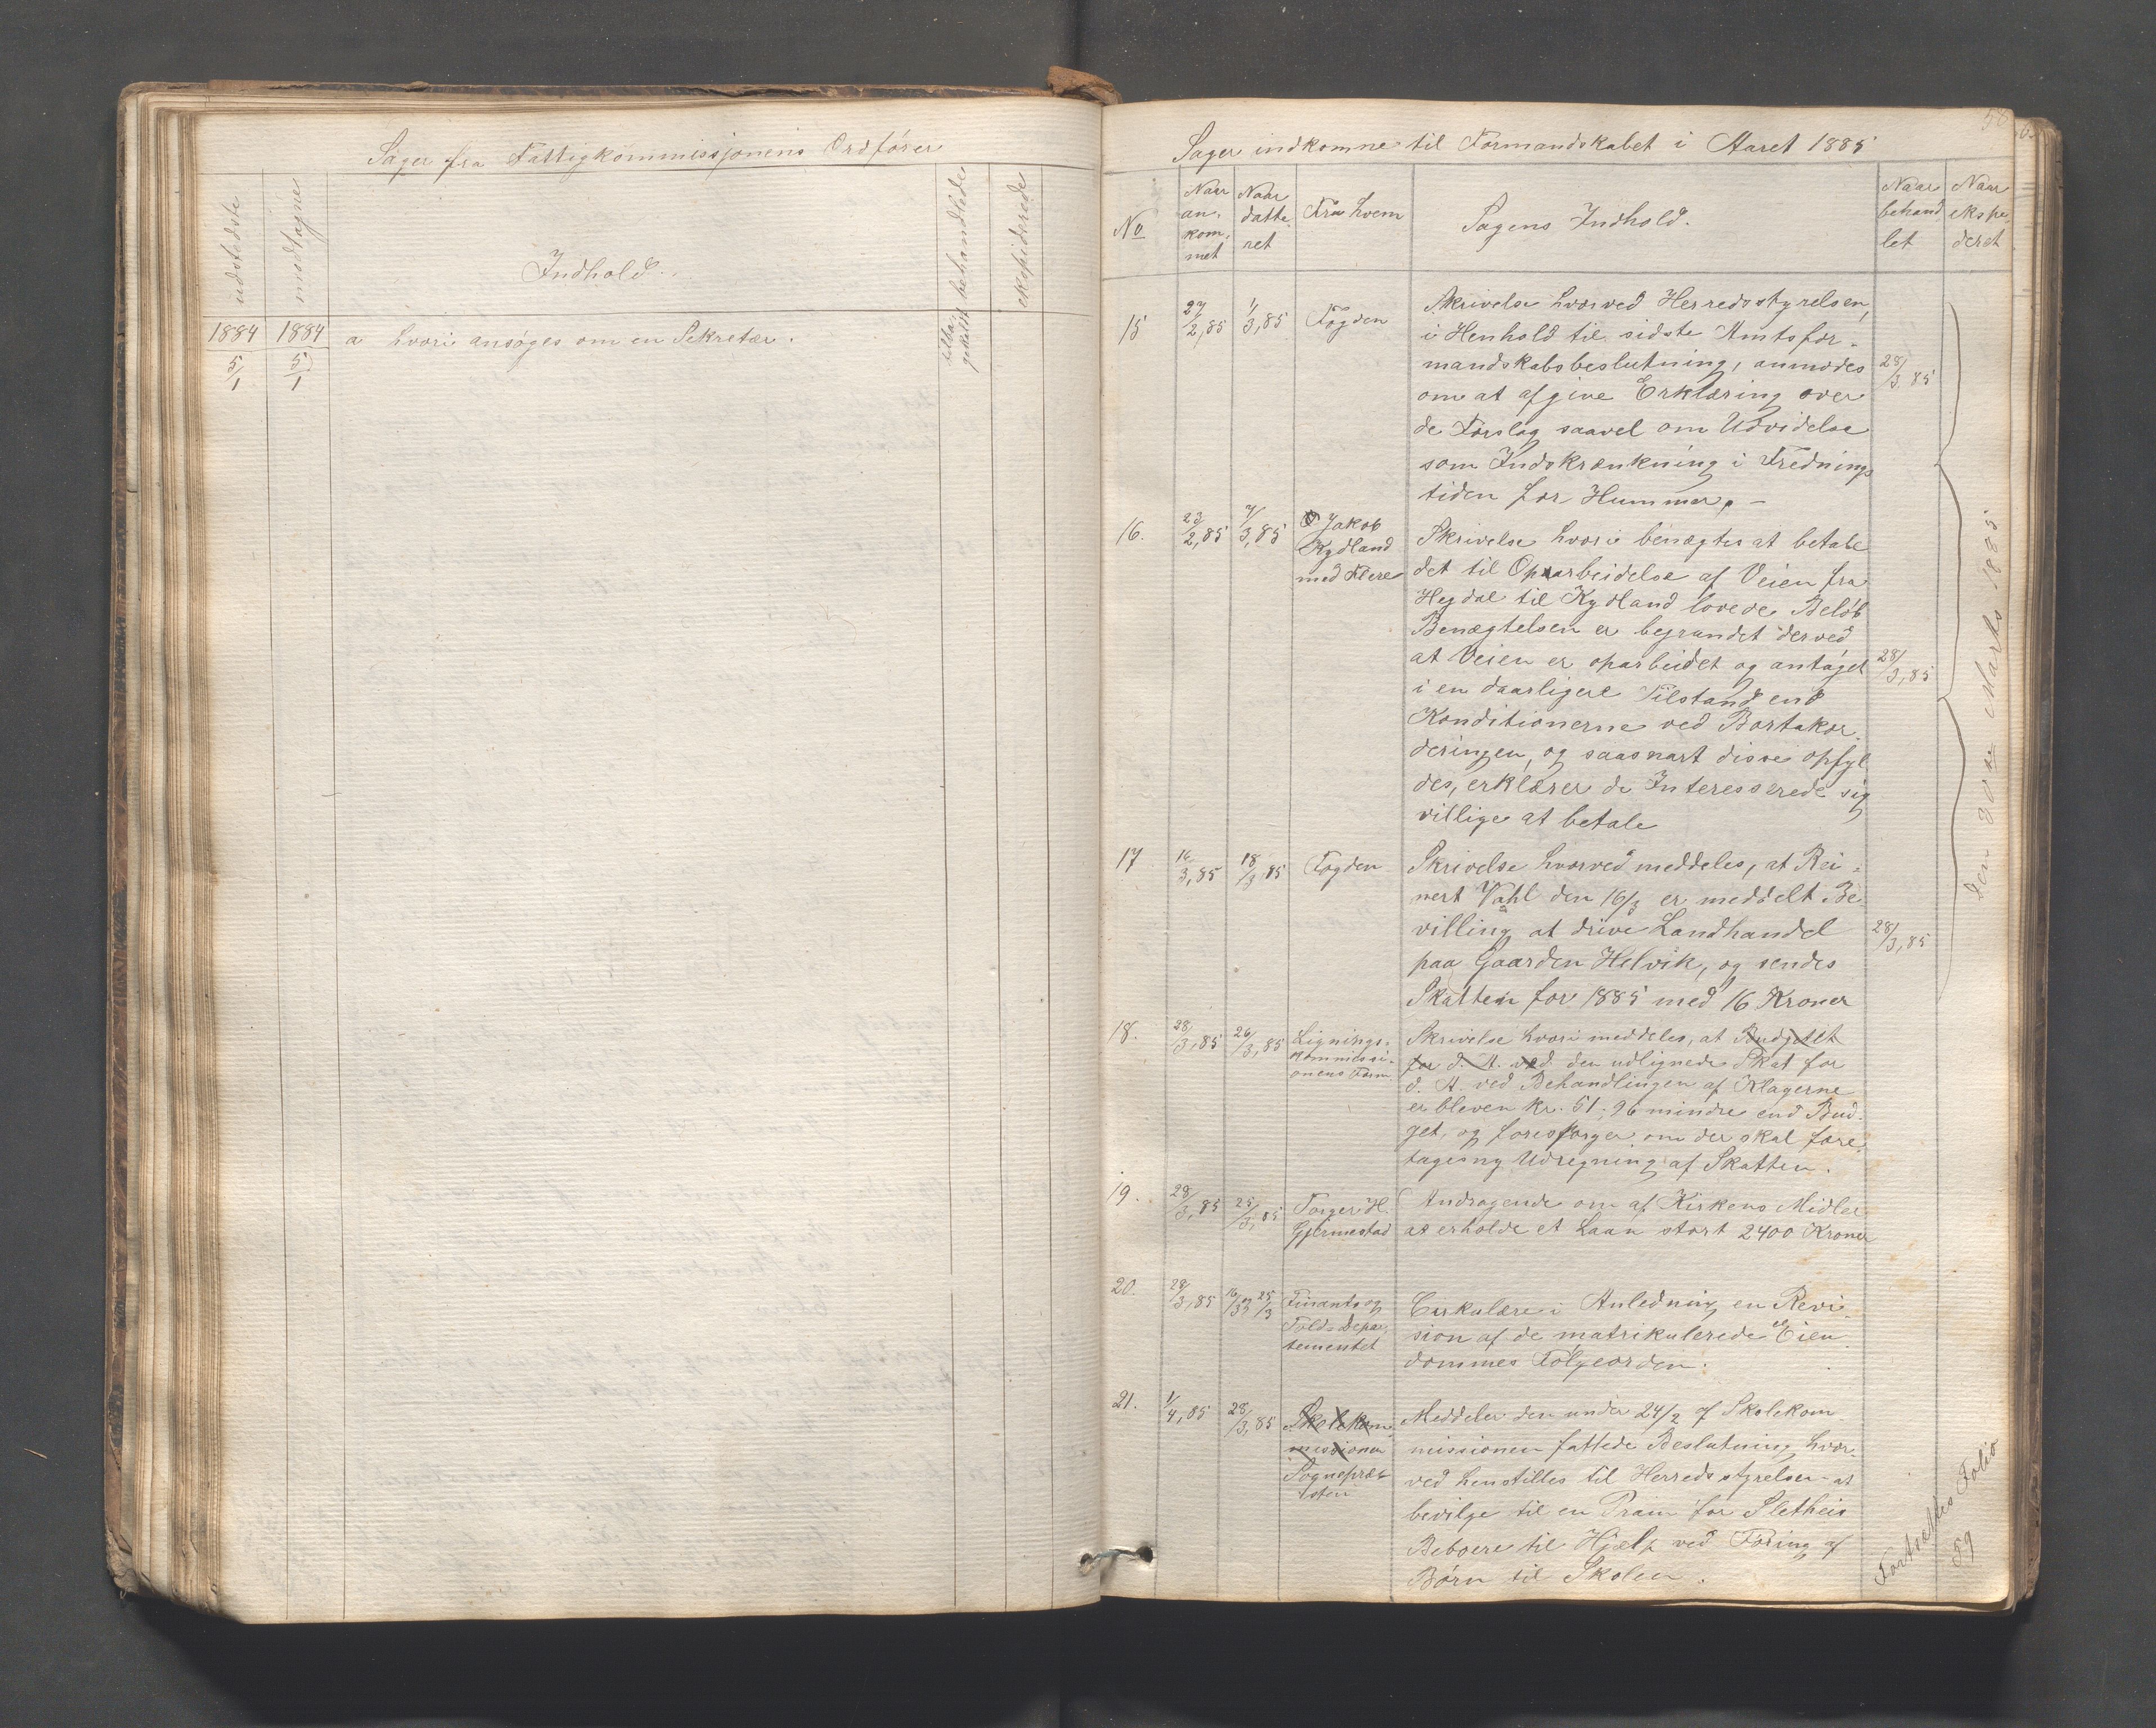 Sager fra Fattigkommissjonens Ordfører
udstedste
modtagne
Indhold.
behandlede
ekspiderede
1884 1884 a hvori ansøges om en Sekretær.
5/1 5/1
58
Sager indkomne til Formandskabet i Aaret 1885
No
Naar an- kom- met
Naar datte- ret
Fra hvem
Sagens Indhold.
Naar behand let
Naar ekspe- deret
15 27/2,85 1/3,85 Fogden Skrivelse hvorved Herredsstyrelsen,
i Henhold til sidste Amtsfor-
mandskabsbeslutning, anmodes 28/3 85
om at afgive Erklæring over
de Forslag saavel om Udvidelse
som Indskrænkning i Frednings
tiden for Hummer. –
16. 23/2,85 7/3,85 Jakob
Kydland
med Flere
Skrivelse hvori benægtes at betale
det til Oparbeidelse af Veien fra
Hegdal til Kydland lovede Beløb
Benægtelsen er begrundet derved
at Veien er oparbeidet og antaget 28/3,85
i en daarligere Tilstand end
Konditionerne ved Bortakor-
deringen, og saasnart disse opfyl
des, erklærer de Interesserede sig
villige at betale
17 16/3,85 18/3,85 Fogden Skrivelse hvorved meddeles, at Rei-
nert Vahl den 16/3 er meddelt Be-
villing at drive Landhandel 28/3,85
paa Gaarden Helvik, og sendes
Skatten for 1885 med 16 Kroner
18. 28/3,85 26/3,85 Lignings-
kommissi-
onens Form
Skrivelse hvori meddeles, at Budjetet
for d. A. ved den udlignede Skat for
d. A. ved Behandlingen af Klagerne
er bleven kr. 51,96 mindre end Bud-
get, og forespørger om der skal fore
tages ny Udregning af Skatten.
19. 28/3,85 25/3,85 Torger H.
Gjermestad
Andragende om af Kirkens Midler
at erholde et Laan stort 2400 Kroner
20. 28/3,85 16/3 25/3 Finants og
Told-Depar
tementet
Cirkulære i Anledning en Revi-
sion af de matrikulerede Eien
dommes Følgeorden.
21. 1/4,85 28/3,85 Skolekom
missionen
Sognepræ
sten
Meddeler den under 24/2 af Skolekom-
missionen fattede Beslutning, hvor-
ved henstilles til Herredsstyrelsen at
bevilge til en Pram for Sletheis
Beboere til Hjælp ved Føring af
Børn til Skolen.
den 30te Marts 1885
Fortsættes Folio
59